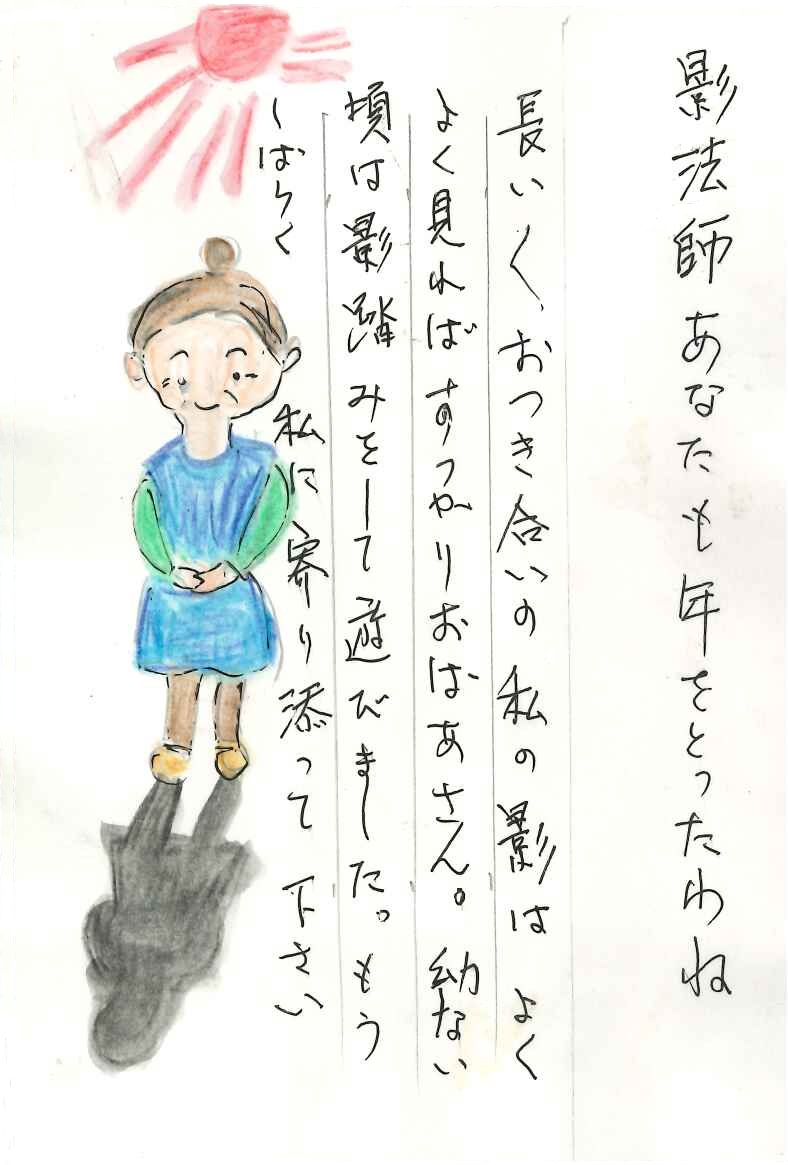 影法師あなたも年をとったわね
長い〱、おつき合いの私の影は よく
よく見ればすっかりおばあさん。幼ない
頃は影踏みをして遊びました。もう
しばらく 私に寄り添って下さい